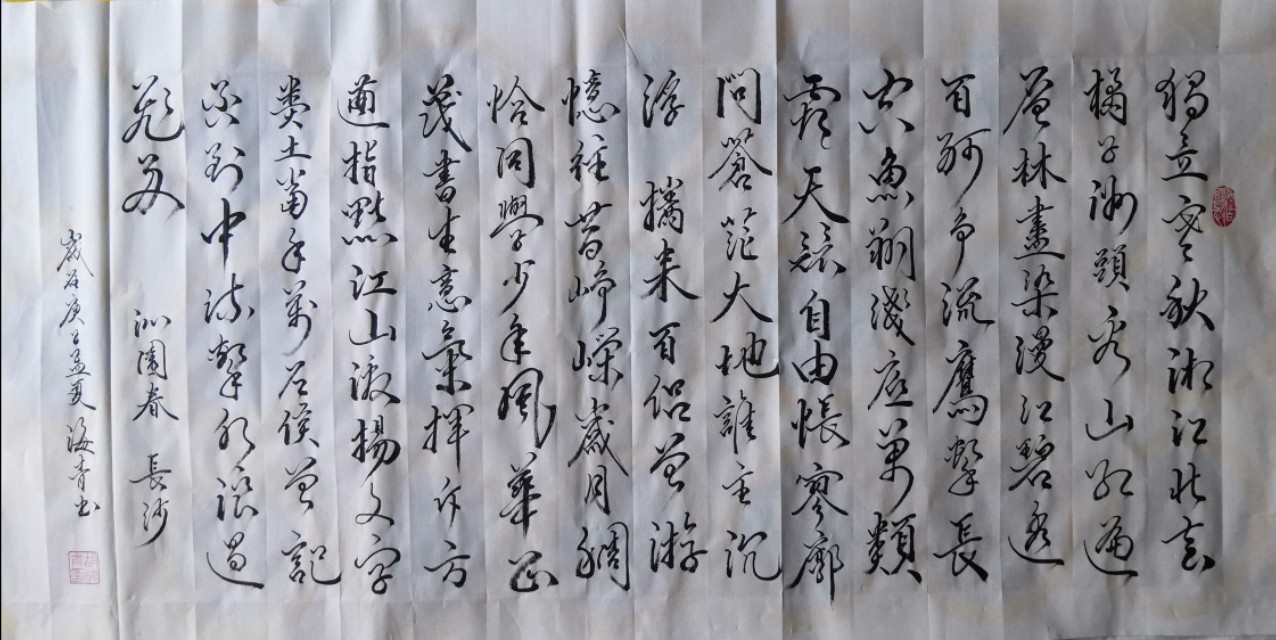 獨立寒秋湘江北去
橘子洲頭看山紅遍
層林盡染漫江碧透
百舸争流鷹擊長
空魚翔淺底萬類
霜天競自由悵寥廓
問蒼茫大地誰主沉
浮 攜来百侣曾游
憶往昔崢嶸歲月稠
恰同學少年風華正
茂書生意氣揮斥方
遒指點江山激揚文字
糞土當年萬户侯曾記
否到中流擊水浪遏
飛舟 沁園春 長沙
歲在庚子孟夏 海青书